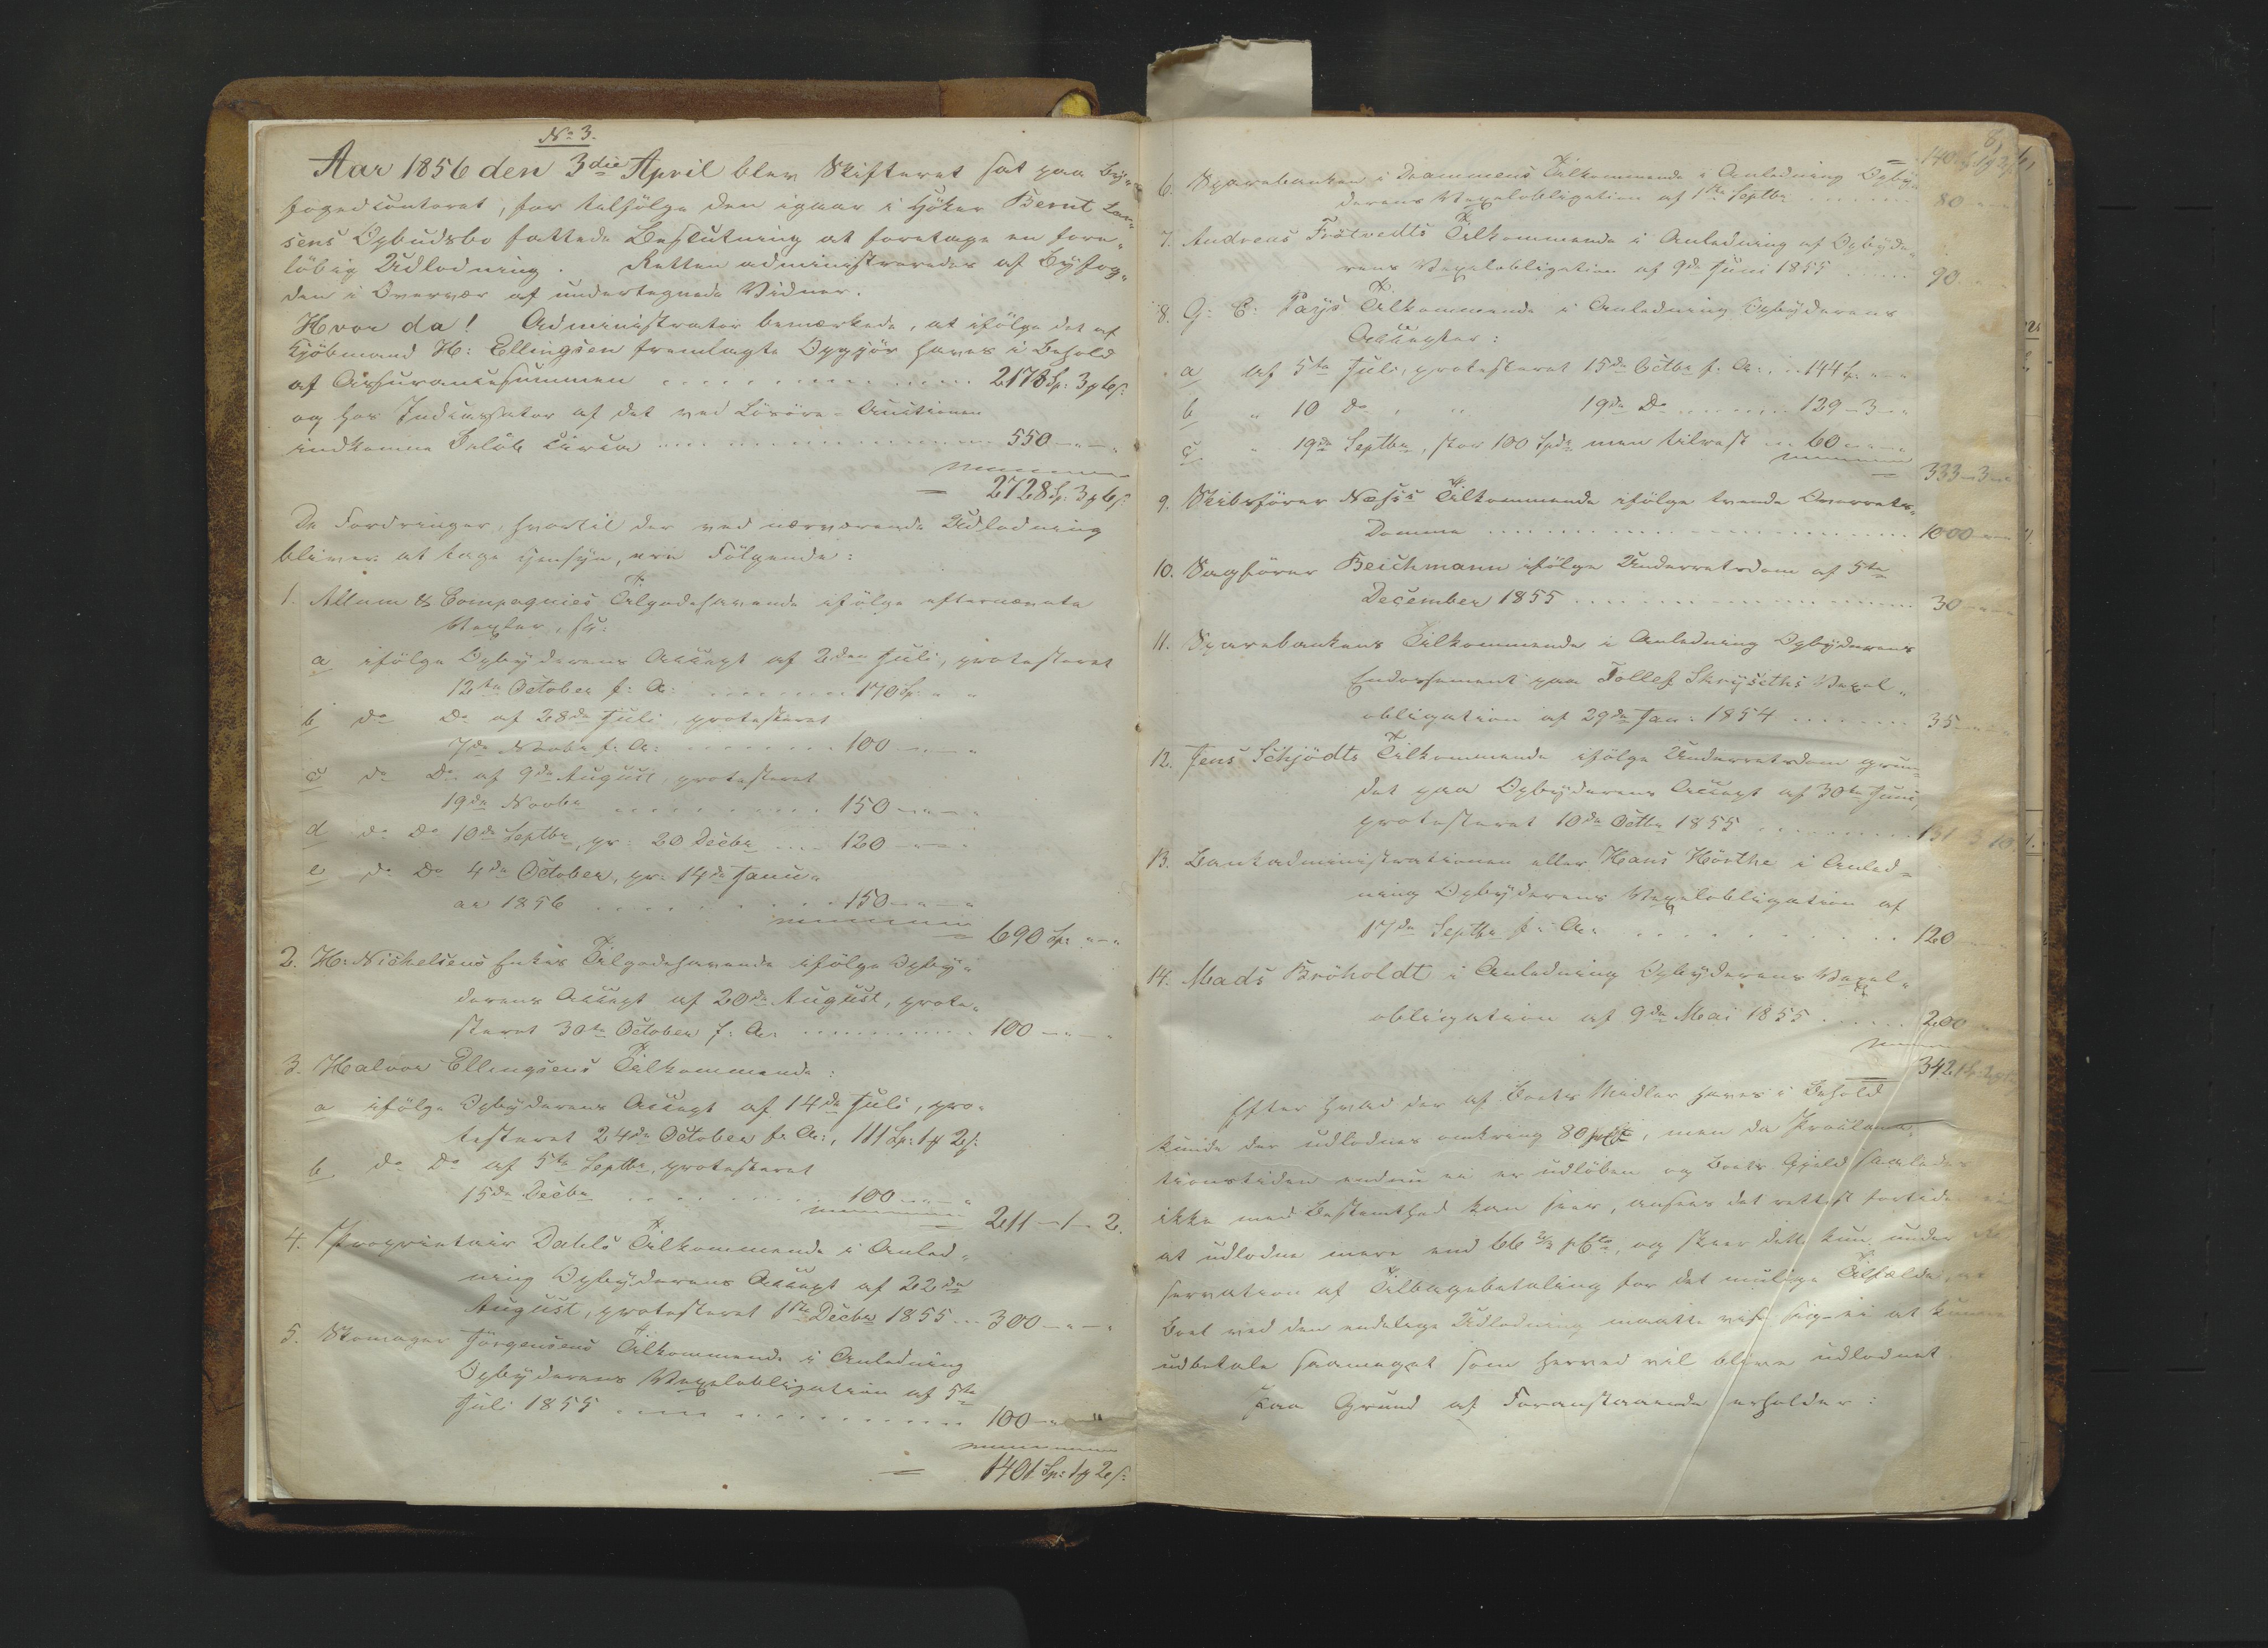 No 3.
Aar 1856 den 3die April blev Skifteret sat paa By-
fogedcontoret, for tilfølge den igaar i Høker Bernt Lar-
sens Opbudsbo fattede Beslutning at foretage en fore-
løbig Udlodning. Retten administreredes af Byfog-
den i Overvær af undertegnede Vidner.
Hvor da! Administrator bemærkede, at ifølge det af
Kjöbmand H: Ellingsen fremlagte Opgjör haves i Behold
af Assurancesummen .... 2178 Sp: 3 ƶ 6 s:
og hos Incassator af det ved Lösöre-Auctionen
indkomne Beløb circa .... 550 - " - "
= 2728 Sp: 3 ƶ 6 s:
De Fordringer, hvortil der ved nærværende Udlodning
bliver at tage Hensyn, ere Følgende:
1. Allum & Compagnies Tilgodehavende ifølge efternævnte
Vexler, sc:
a ifølge Opbyderens Accept af 2den Juli, protesteret
12te October f: A: .... 170 Sp: " "
b do Do af 28de Juli, protesteret
7de Novbr f: A: .... 100 - " - "
c do Do af 9de August, protesteret
19de Novbr .... 150 - " - "
d do Do 10de Septbr, pr: 20 Decbr .... 120 - " - "
e do Do 4de October, pr: 14de Janu-
ar 1856 .... 150 - " - "
= 690 Sp: " - "
2. H: Nichelsens Enkes Tilgodehavende ifølge Opby-
derens Accept af 20de August, prote-
steret 30te October f: A: .... 100 - " - "
3. Halvor Ellingsens Tilkommende:
a ifølge Opbyderens Accept af 14de Juli, pro-
testeret 24de October f: A:, 111 Sp: 1 ƶ 2 s:
b do Do af 5te Septbr, protesteret
15de Decbr .... 100 - " - "
= 211 - 1 - 2.
4. Proprietair Dahls Tilkommende i Anled-
ning Opbyderens Accept af 22de
August, protesteret 1ste Decbr 1855 ... 300 - " - "
5. Skomager Jörgensens Tilkommende i Anledning
Opbyderens Vexelobligation af 5te
Juli 1855 .... 100 - " "
= 1401 Sp: 1 ƶ 2 s:
8.
= 1401 Sp 1 ƶ 2 s:
6. Sparebanken i Drammens Tilkommende i Anledning Opby-
derens Vexelobligation af 1ste Septbr .... 80
7. Andreas Frötvedts Tilkommende i Anledning af Opbyde-
rens Vexelobligation af 9de Juni 1855 .... 90
8. G: C: Pays Tilkommende i Anledning Opbyderens
Accepter:
a af 5te Juli, protesteret 15de Octbr f: A:, .. 144 Sp: " - "
b " 10 do, " 19de Do .... 129 - 3 - "
c " 19de Septbr, stor 100 Spd, men tilrest ... 60 - " - "
= 333 - 3 - "
9. Skibsfører Næss's Tilkommende ifølge tvende Overrets-
Domme .... 1000 - " - "
10. Sagfører Beichmann ifølge Underretsdom af 5te
December 1855 .... 30 - " - "
11. Sparebankens Tilkommende i Anledning Opbyderens
Endossement paa Tollef Skryseths Vexel-
obligation af 29de Jan: 1854 .... 35 - " - "
12. Jens Schjödts Tilkommende ifølge Underretsdom grun-
det paa Opbyderens Accept af 30te Juni,
protesteret 10de Octbr 1855 .... 131 3 10
13. Bankadministrationen eller Hans Hörthe i Anled-
ning Opbyderens Vexelobligation af
17de Septbr f: A: .... 120
14. Mads Bröholdt i Anledning Opbyderens Vexel-
obligation af 9de Mai 1855 .... 200
= 3421
Efter hvad der af Boets Midler haves i Behold
kunde der udloddes omkring 80 pCt, men da Proclama-
tionstiden endnu ei er udløben og Boets Gjæld saaledes
ikke med Bestemthed kan sees, ansees det rettest fortiden ei
at udlodde mere end 66 2/3 pCto, og skeer dette kun under Re-
servation af Tilbagebetaling for det mulige Tilfælde, at
Boet ved den endelige Udlodning maatte vise sig ei at kunne
udbetale saameget som herved vil blive udloddet.
Paa Grund af Foranstaaende erholder: